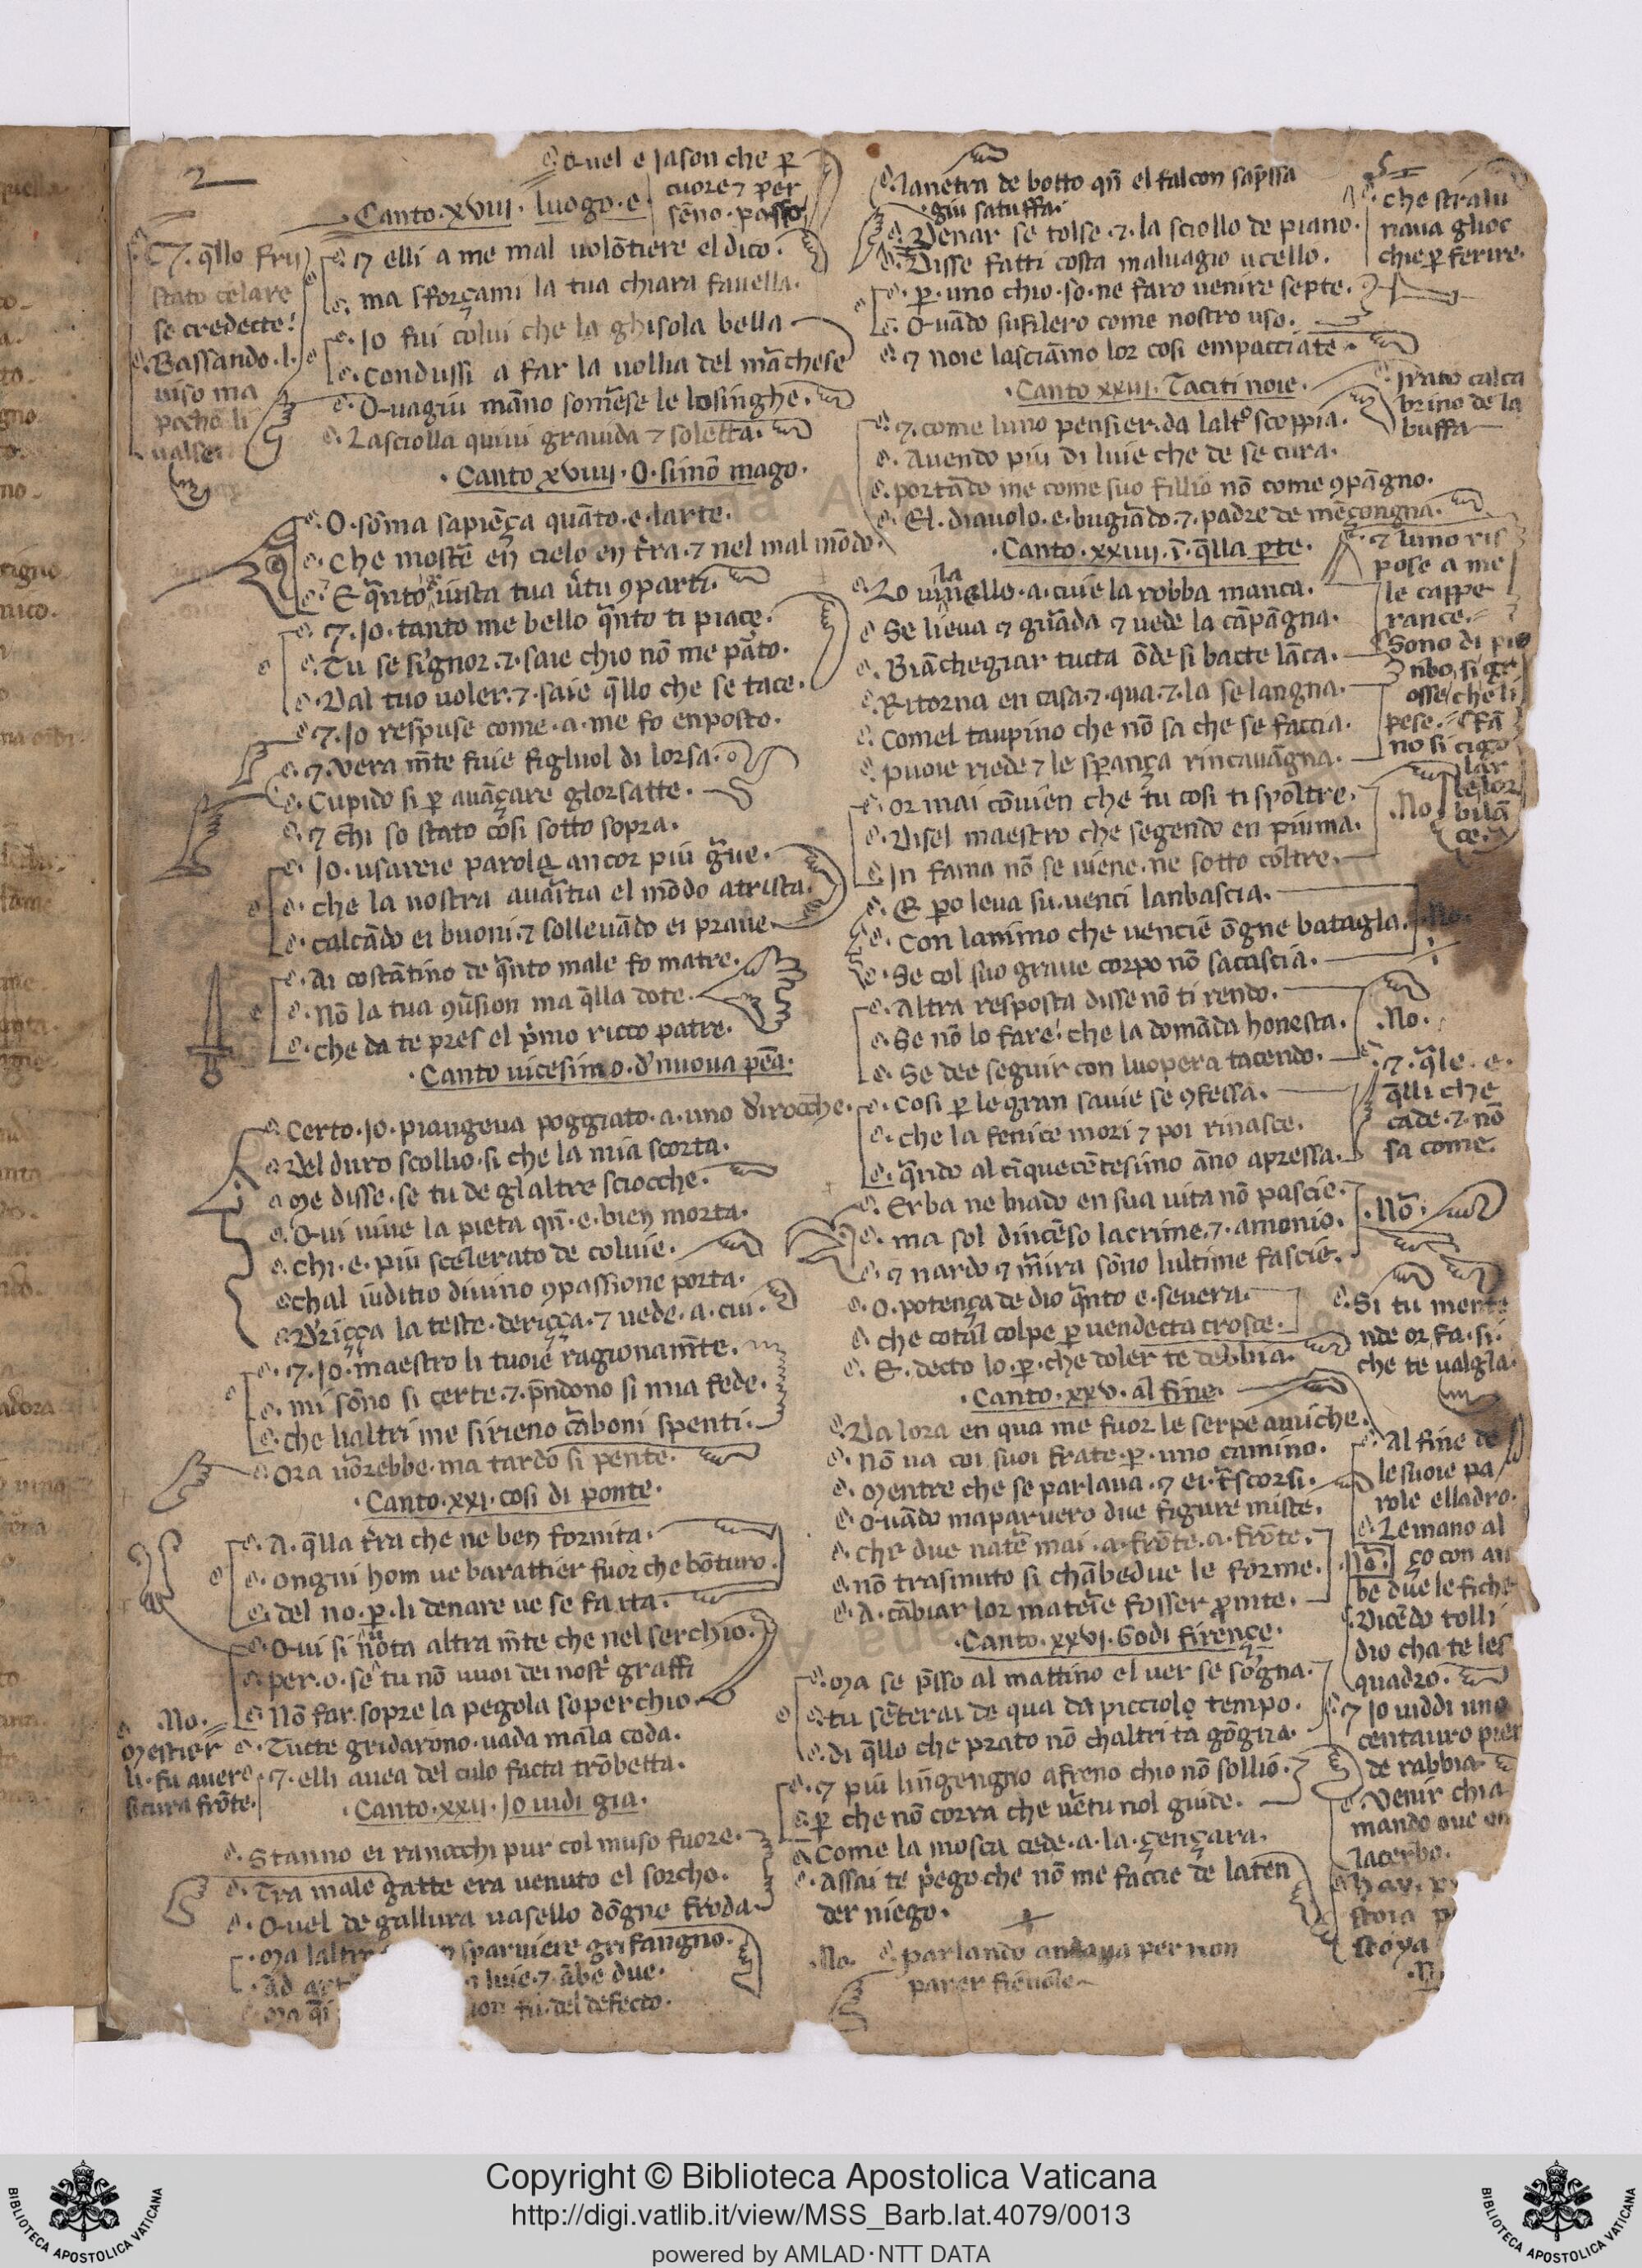 2
Quel e Jason che ꝑ
cuore ⁊ per
sẽno · passo
Canto · xviii · luogo · e ·
⁊ · q̃llo fru
stato celare
se credette
Bassando · l ·
uiso ma
pocho li
ualse
⁊ elli a me mal uolõtiere el dico ·
ma sforçami la tua chiara fauella ·
Io fui colui che la ghisola bella
Condussi a far la uollia del marchese
Lasciolla quiui grauida ⁊ soletta ·
Canto xviiii · O · simõ mago ·
O · sõma sapiẽça quãto · e · larte ·
Che mostrẽ en cielo en t̃ra · ⁊ nel mal mõdo ·
E q̃nto iusta tua u̇tu ꝯparti ·
⁊ · Io · tanto me bello q̃nto ti piace ·
Tu se signor · ⁊ · saie chio nõ me pãto ·
Dal tuo uoler · ⁊ · saie q̃llo che se tace ·
⁊ · Io respuse come · a · me fo enposto ·
⁊ · uera m̃te fuie figliuol di lorsa ·
Cupido si ꝑ auãçare glorsatte ·
⁊ chi so stato cosi sotto sopra ·
Io · usareie parole ancor piu g̃ue ·
che la nostra auaritia el mõdo atrista ·
calcãdo ei buoni · ⁊ solleuãdo ei praue
Ai costãtino de q̃nto male fo matre ·
Nõ la tua ꝯu̇sion ma q̃lla dote ·
che da te pres el p̃mo ricco patre ·
Canto uicesimo · d' nuoua pẽa ·
Certo · Io · piangeua poggiato · a · uno d'irocche ·
Del duro scollio · si che la mia scorta ·
Me disse · se tu de gl altre sciocche ·
Qui uiue la pieta qñ · e · bien morta ·
chi · e · piu scelerato de coluie ·
chal iuditio diuino ꝯpassione porta ·
Driçça la teste · deriçça · ⁊ uede · a · cui ·
⁊ · Io · maestro li tuoie ragionam̃te ·
mi sõno si certe · ⁊ · p̃ndono si mia fede ·
che lialtri me sirieno cãboni spenti ·
Ora uorrebbe · ma tardo si pente ·
Canto · xxi · cosi di ponte ·
A · q̃lla t̃ra che ne ben fornita ·
ongni hom ue barattier fuor che bõturo ·
del no · ꝑ · li denare ue se fa ita ·
Qui si nota altra m̃te che nel serchio ·
per · o · se tu nõ uuoi dei nostr̃ graffi
Nõ far · sopre la pegola soperchio
· No ·
Mestier
li · fu auere
sicura frõte ·
Tutte gridarono · uada mala coda ·
⁊ · elli auea del culo facta trõbetta ·
Canto · xxii · Io uidi gia ·
Stanno ei ranocchi pur col muso fuore ·
Tra male gatte era uenuto el sorcho ·
Quel de gallura uasello dõgne froda
Ma laltro sparuiere grifangno ·
luie · ⁊ ãbe due ·
del defecto ·
5
lanetra de botto qñ el falcon sap̃ssa
giu satuffa ·
Denar se tolse · ⁊ · la sciollo de piano ·
Disse fatti costa maluagio ucello ·
ꝑ · uno chio · so · ne faro uenire septe ·
Quãdo sufilero come nostro uso ·
⁊ noie lasciãmo lor cosi empacciate
che stralu
naua glioc
chie ꝑ ferire ·
Canto xxiii · Taciti noie ·
Irato calca
brino de la
buffa
⁊ · come luno pensier · da laltᵒ scoppia ·
Auendo piu di luie che de se cura ·
portãdo me come suo fillio nõ come ꝯpãgno ·
El · diauolo · e · bugiãdo · ⁊ · padre de mẽçongna ·
Canto · xxiiii · ĩ · q̃lla ꝑte ·
⁊ luno ris
pose a me
le cappe
rance ·
Sono di pio
nbo · si ge
osse che li
pese
fã
no si cigo
lar
le lor
bilã
ce ·
Lo uilanello · a · cuie la robba manca ·
Se lieua ⁊ guãda ⁊ uede la cãpãgna ·
Biãchegiar tucta õde si bacte lãca ·
Ritorna en casa · ⁊ · qua · ⁊ · la se langna ·
Comel taupino che nõ sa che se faccia ·
puoie riede ⁊ le sperança rincauãgna ·
Or mai cõuien che tu cosi ti spoltre ·
Disel maestro che segendo en piuma ·
In fama nõ se uiene · ne sotto coltre ·
· No ·
E ꝑo leua su · uenci lanbascia ·
Con lanimo che uencie õgne batagla ·
Se col suo graue corpo nõ sacascia ·
· No ·
Altra resposta disse nõ ti rendo ·
Se nõ lo fare · che la domãda honesta ·
Se dee seguir con luopera tacendo ·
· No ·
Cosi ꝑ le gran sauie se ꝯfessa ·
che la fenice mori ⁊ poi rinasce ·
q̃ndo al cĩquecẽtesimo ãno apressa ·
⁊ · q̃le · e ·
q̃lli che
cade · ⁊ · nõ
sa come ·
Erba ne biado en sua uita nõ pascie ·
ma sol dincẽso lacrime · ⁊ · amonio ·
⁊ nardo ⁊ mirra sõno lultime fascie ·
· Nõ ·
O · potença de dio q̃nto e · seuera ·
che cotal colpe ꝑ uendecta crosce ·
E · decto lo · ꝑ · che doler te debbia ·
Si tu mente
nde or · fa · si ·
che te ualgla ·
Canto · xxv · al fine ·
Da lora en qua me fuor le serpe amiche ·
Nõ ua coi suoi frate · ꝑ · uno camino ·
Mentre che se parlaua · ⁊ ei · t̃scorsi ·
Quãdo maparuero due figure miste ·
che due natẽ mai · a · frõte · a · frõte ·
nõ trasmuto si chãbedue le forme ·
A · cãbiar lor materĩe fosser ꝓmte ·
Al fine de
le suoie pa
role elladro ·
Le mano al
ço con an
be due le fiche
Dicẽdo tolli
dio cha te les
quadro ·
· No ·
Canto · xxvi · Godi firençe ·
Ma se p̃sso al mattino el uer se sogna ·
tu sẽterai de qua da picciolo tempo ·
di q̃llo che prato nõ chaltri ta gõgna ·
⁊ piu lingengno afreno chio nõ sollio ·
ꝑ che nõ corra che uẽtu nol guide ·
Come la mosca cede · a · la · çençara ·
Assai te p̃ego che nõ me faccie de laten
der niego ·
⁊ Io uiddi uno
centauro pien
de rabbia
Venir chia
mando oue
lacerbo ·
stoia
stoya
· No · parlando andaua per non
parer fieuole
Copyright © Biblioteca Apostolica Vaticana
http://digi.vatlib.it/view/MSS_Barb.lat.4079/0013
powered by AMLAD·NTT DATA
BIBLIOTECA APOSTOLICA VATICANA
BIBLIOTECA APOSTOLICA VATICANA